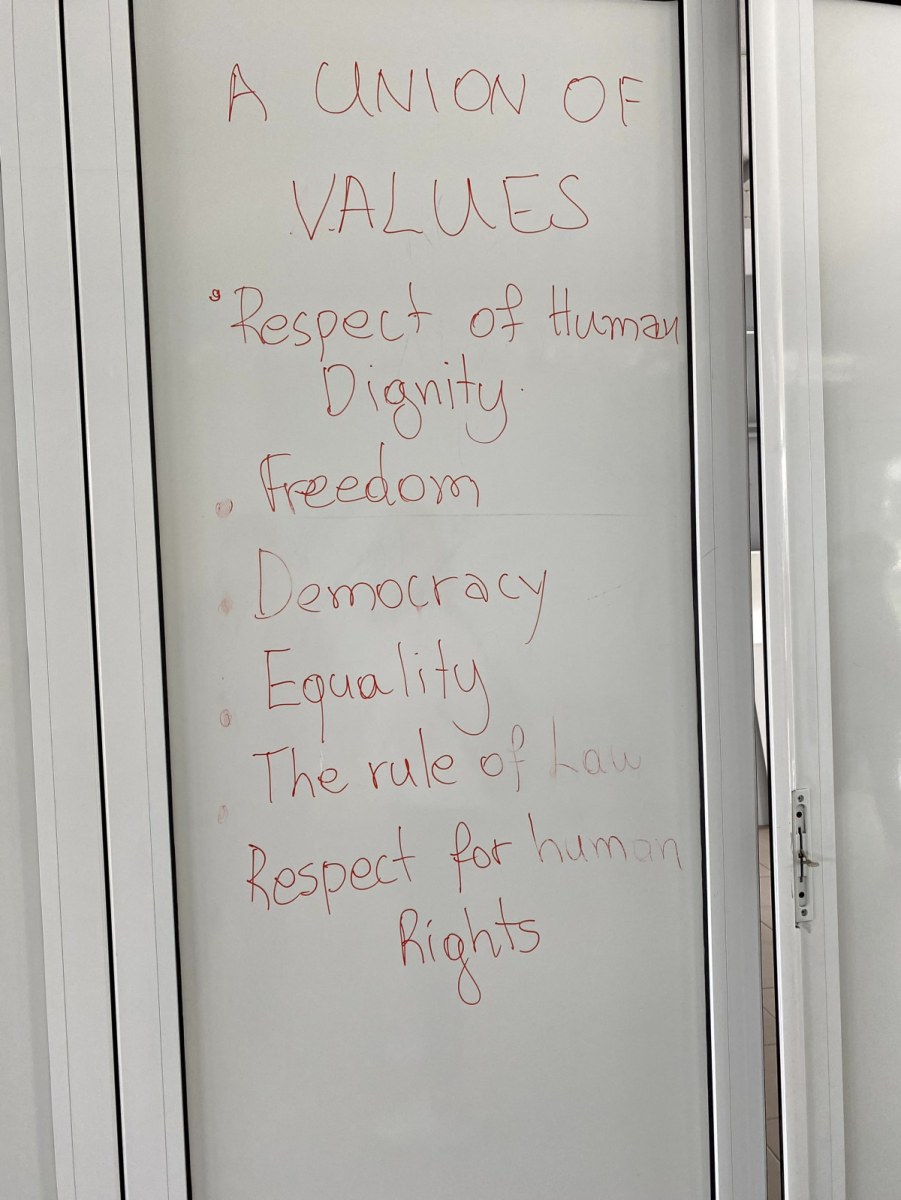 A UNION OF
VALUES
• Respect of Human
Dignity.
• Freedom
• Democracy
• Equality
• The rule of Law
Respect for human
Rights